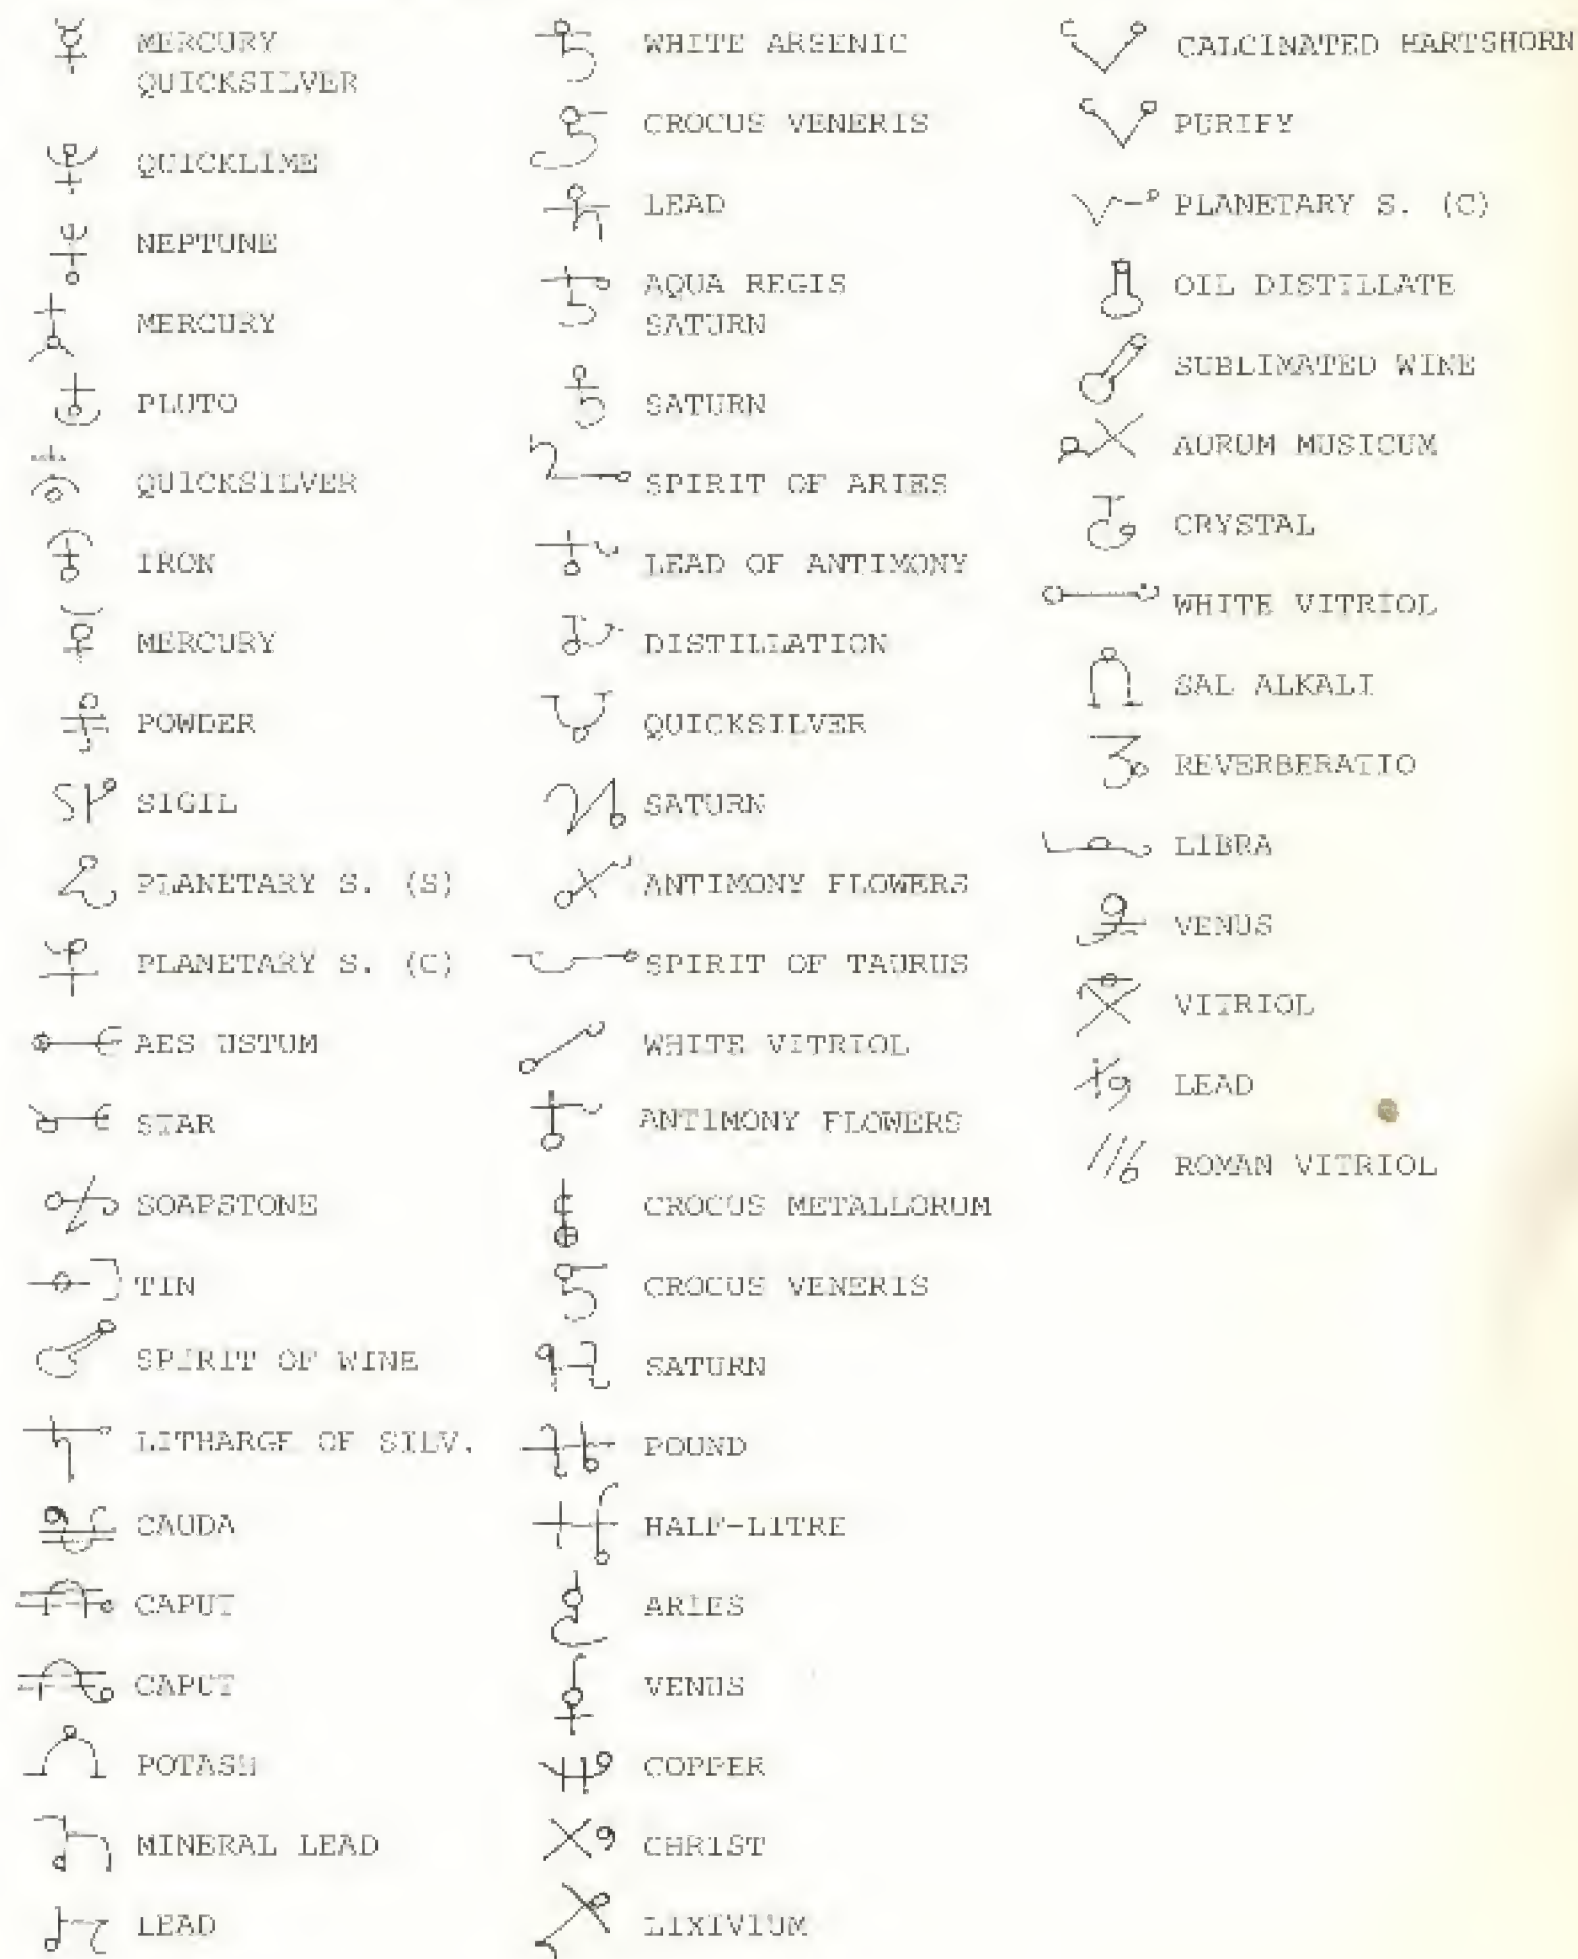 MERCURY
QUICKSILVER
QUICKLIME
NEPTUNE
MERCURY
PLUTO
QUICKSILVER
IRON
MERCURY
POWDER
SIGIL
PLANETARY S. (S)
PLANETARY S. (C)
AES USTUM
STAR
SOAPSTONE
TIN
SPIRIT OF WINE
LITHARGE OF SILV.
CAUDA
CAPUT
CAPUT
POTASH
MINERAL LEAD
LEAD
WHITE ARSENIC
CROCUS VENERIS
LEAD
AQUA REGIS
SATURN
SATURN
SPIRIT OF ARIES
LEAD OF ANTIMONY
DISTILLATION
QUICKSILVER
SATURN
ANTIMONY FLOWERS
SPIRIT OF TAURUS
WHITE VITRIOL
ANTIMONY FLOWERS
CROCUS METALLORUM
CROCUS VENERIS
SATURN
POUND
HALF-LITRE
ARIES
VENUS
COPPER
CHRIST
LIXIVIUM
CALCINATED HARTSHORN
PURIFY
PLANETARY S. (C)
OIL DISTILLATE
SUBLIMATED WINE
AURUM MUSICUM
CRYSTAL
WHITE VITRIOL
SAL ALKALI
REVERBERATIO
LIBRA
VENUS
VITRIOL
LEAD
ROMAN VITRIOL